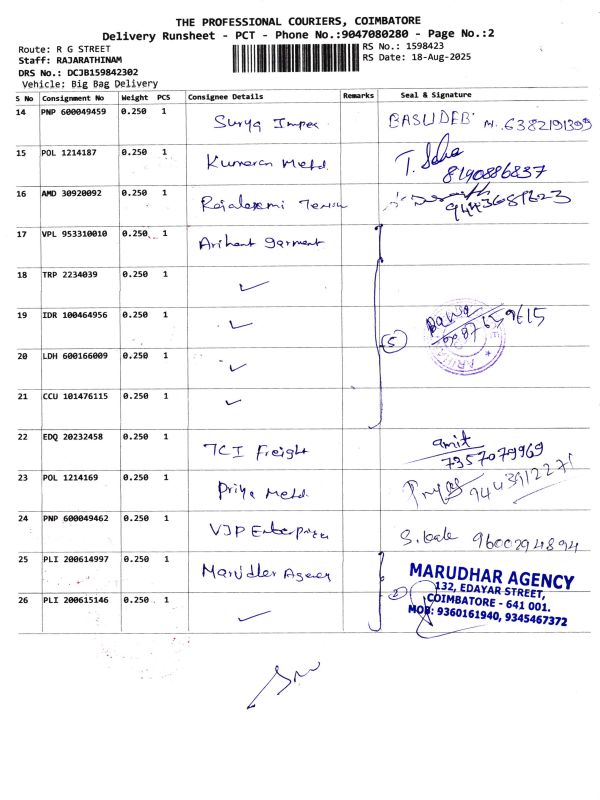 THE PROFESSIONAL COURIERS, COIMBATORE
Delivery Runsheet - PCT - Phone No.:9047080280 - Page No.:2
Route: R G STREET
RS No.: 1598423
Staff: RAJARATHINAM
RS Date: 18-Aug-2025
DRS No.: DCJB159842302
Vehicle: Big Bag Delivery
S No Consignment No Weight PCS Consignee Details Remarks Seal & Signature
14 PNP 600049459 0.250 1 Surya Impex BASUDEB M. 6382191399
15 POL 1214187 0.250 1 Kumaran Metal T. Saha
8190886837
16 AMD 30920092 0.250 1 Rajalaxmi
17 VPL 953310010 0.250 1 Arihant garment
18 TRP 2234039 0.250 1 ✓
19 IDR 100464956 0.250 1 ✓
20 LDH 600166009 0.250 1 ✓ 5
21 CCU 101476115 0.250 1 ✓
22 EDQ 20232458 0.250 1 TCI Freight amit
7357079969
23 POL 1214169 0.250 1 Priya Metal
24 PNP 600049462 0.250 1 VJP Enterprises 9600294894
25 PLI 200614997 0.250 1 Marudhar Agency
MARUDHAR AGENCY
132, EDAYAR STREET,
26 PLI 200615146 0.250 1 ✓ 2
COIMBATORE - 641 001.
MOB: 9360161940, 9345467372